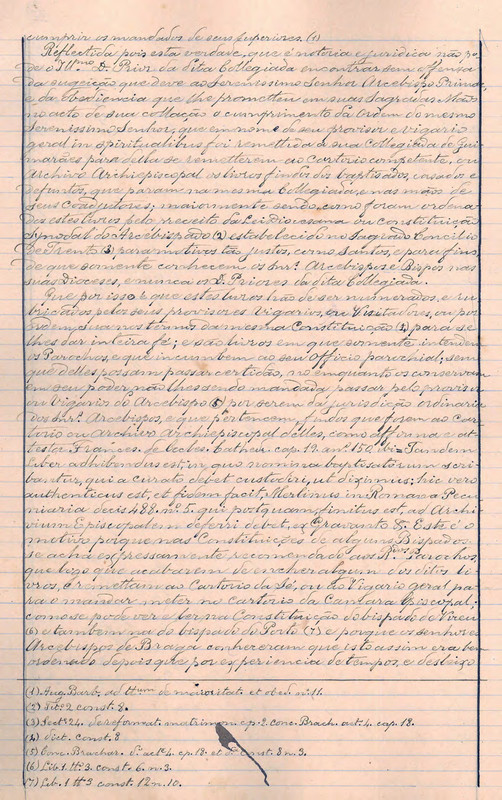 cumprir os mandados de seus superiores. (1)
Reflectida pois esta verdade, que é notoria e juridica não
de o Ill.mo D. Prior da dita Collegiada encontrar sem offensa
da sugeição que deve ao Serenissimo Senhor Arcebispo Primaz
e da obediencia que lhe prometteu em suas Sagradas Mãos
no acto de sua collação o cumprimento da Ordem do mesmo
Serenissimo Senhor, que em nome de seu provisor e vigario
geral in spiritualibus foi remettida á sua Collegiada de Gui-
marães para della se remetterem ao Cartorio competente, ou
Archivo Archiepiscopal os livros findos dos baptisados, casados e
defuntos, que param na mesma Collegiada, e nas mãos de
seus Coadjutores; maiormente sendo, como foram ordena-
dos estes livros pelo preceito da Lei Diocesana ou constituição
Synodal do Arcebispado (2) estabelecido no Sagrado Concilio
de Trento (3) para motivos tão justos, como Santos, e para fins,
de que somente conhecem os Snr.s Arcebispos e Bispos nas
suas Dioceses, e nunca os D. Priores da dita Collegiada.
Que por isso é que estes livros hão de ser numerados, e ru-
bricados pelos seus provisores Vigarios, ou Visitadores, ou por
ordem sua nos termos da mesma Constituição (4) para se
lhes dar inteira fé; e são livros em que somente intendem
os Parochos, e que incumbem ao seu Officio parochial; sem
que delles possam passar certidão, no emquanto os conservam
em seu poder, não lhes sendo mandada passar pelo provisor
ou Vigario do Arcebispo (5) por serem da jurisdição ordinaria
dos Snr.s Arcebispos, e que pertencem, findos que forem ao Car-
torio ou Archivo Archiepiscopal delles, como affirma e at-
testa Frances. de Eccles. Cathed. cap. 19. an.º 150. ibi = Tandem
liber adhibendus est, in quo nomina baptisatorum scri-
bantur, qui a curato debet custodiri, ut diximus; hic vero
authenticus est, et fidem facit, Merlinus in Romana Pecu-
niaria decis 488. n.º 5. qui postquam finitus est, ad Archi-
vium Episcopalem deferri debet, ex Gravanto &. Este é o
motivo porque nas Constituições de alguns Bispados
se acha expressamente recomendado aos R.dos Parochos,
que logo que acabarem de encher algum dos ditos li-
vros, o remettam ao Cartorio da Sé, ou do Vigario geral pa-
ra o mandar meter no cartorio da Camara Episcopal;
como se pode ver e ler na Constituição do bispado de Vizeu
(6) e tambem na do bispado do Porto (7) e porque os senhores
Arcebispos de Braga conheceram que isto assim era bem
ordenado depois que por experiencia de tempos, e desleixo
(1) Aug. Barb. ad tt.um de maioritat. et obed. n.º 11.
(2) tit.º 2 const. 8.
(3) Sect.º 24. de reformat. matrimon. cp. 2. conc. Brach. act. 4. cap. 18.
(4) dict. const. 8
(5) Conc. Brachar. d.º act.º 4. cp. 18. et d.ª const. 8 n. 3.
(6) Lib. 1 tt.º 3. const. 6. n. 3.
(7) Lib. 1 tt.º 3 const. 12 n. 10.